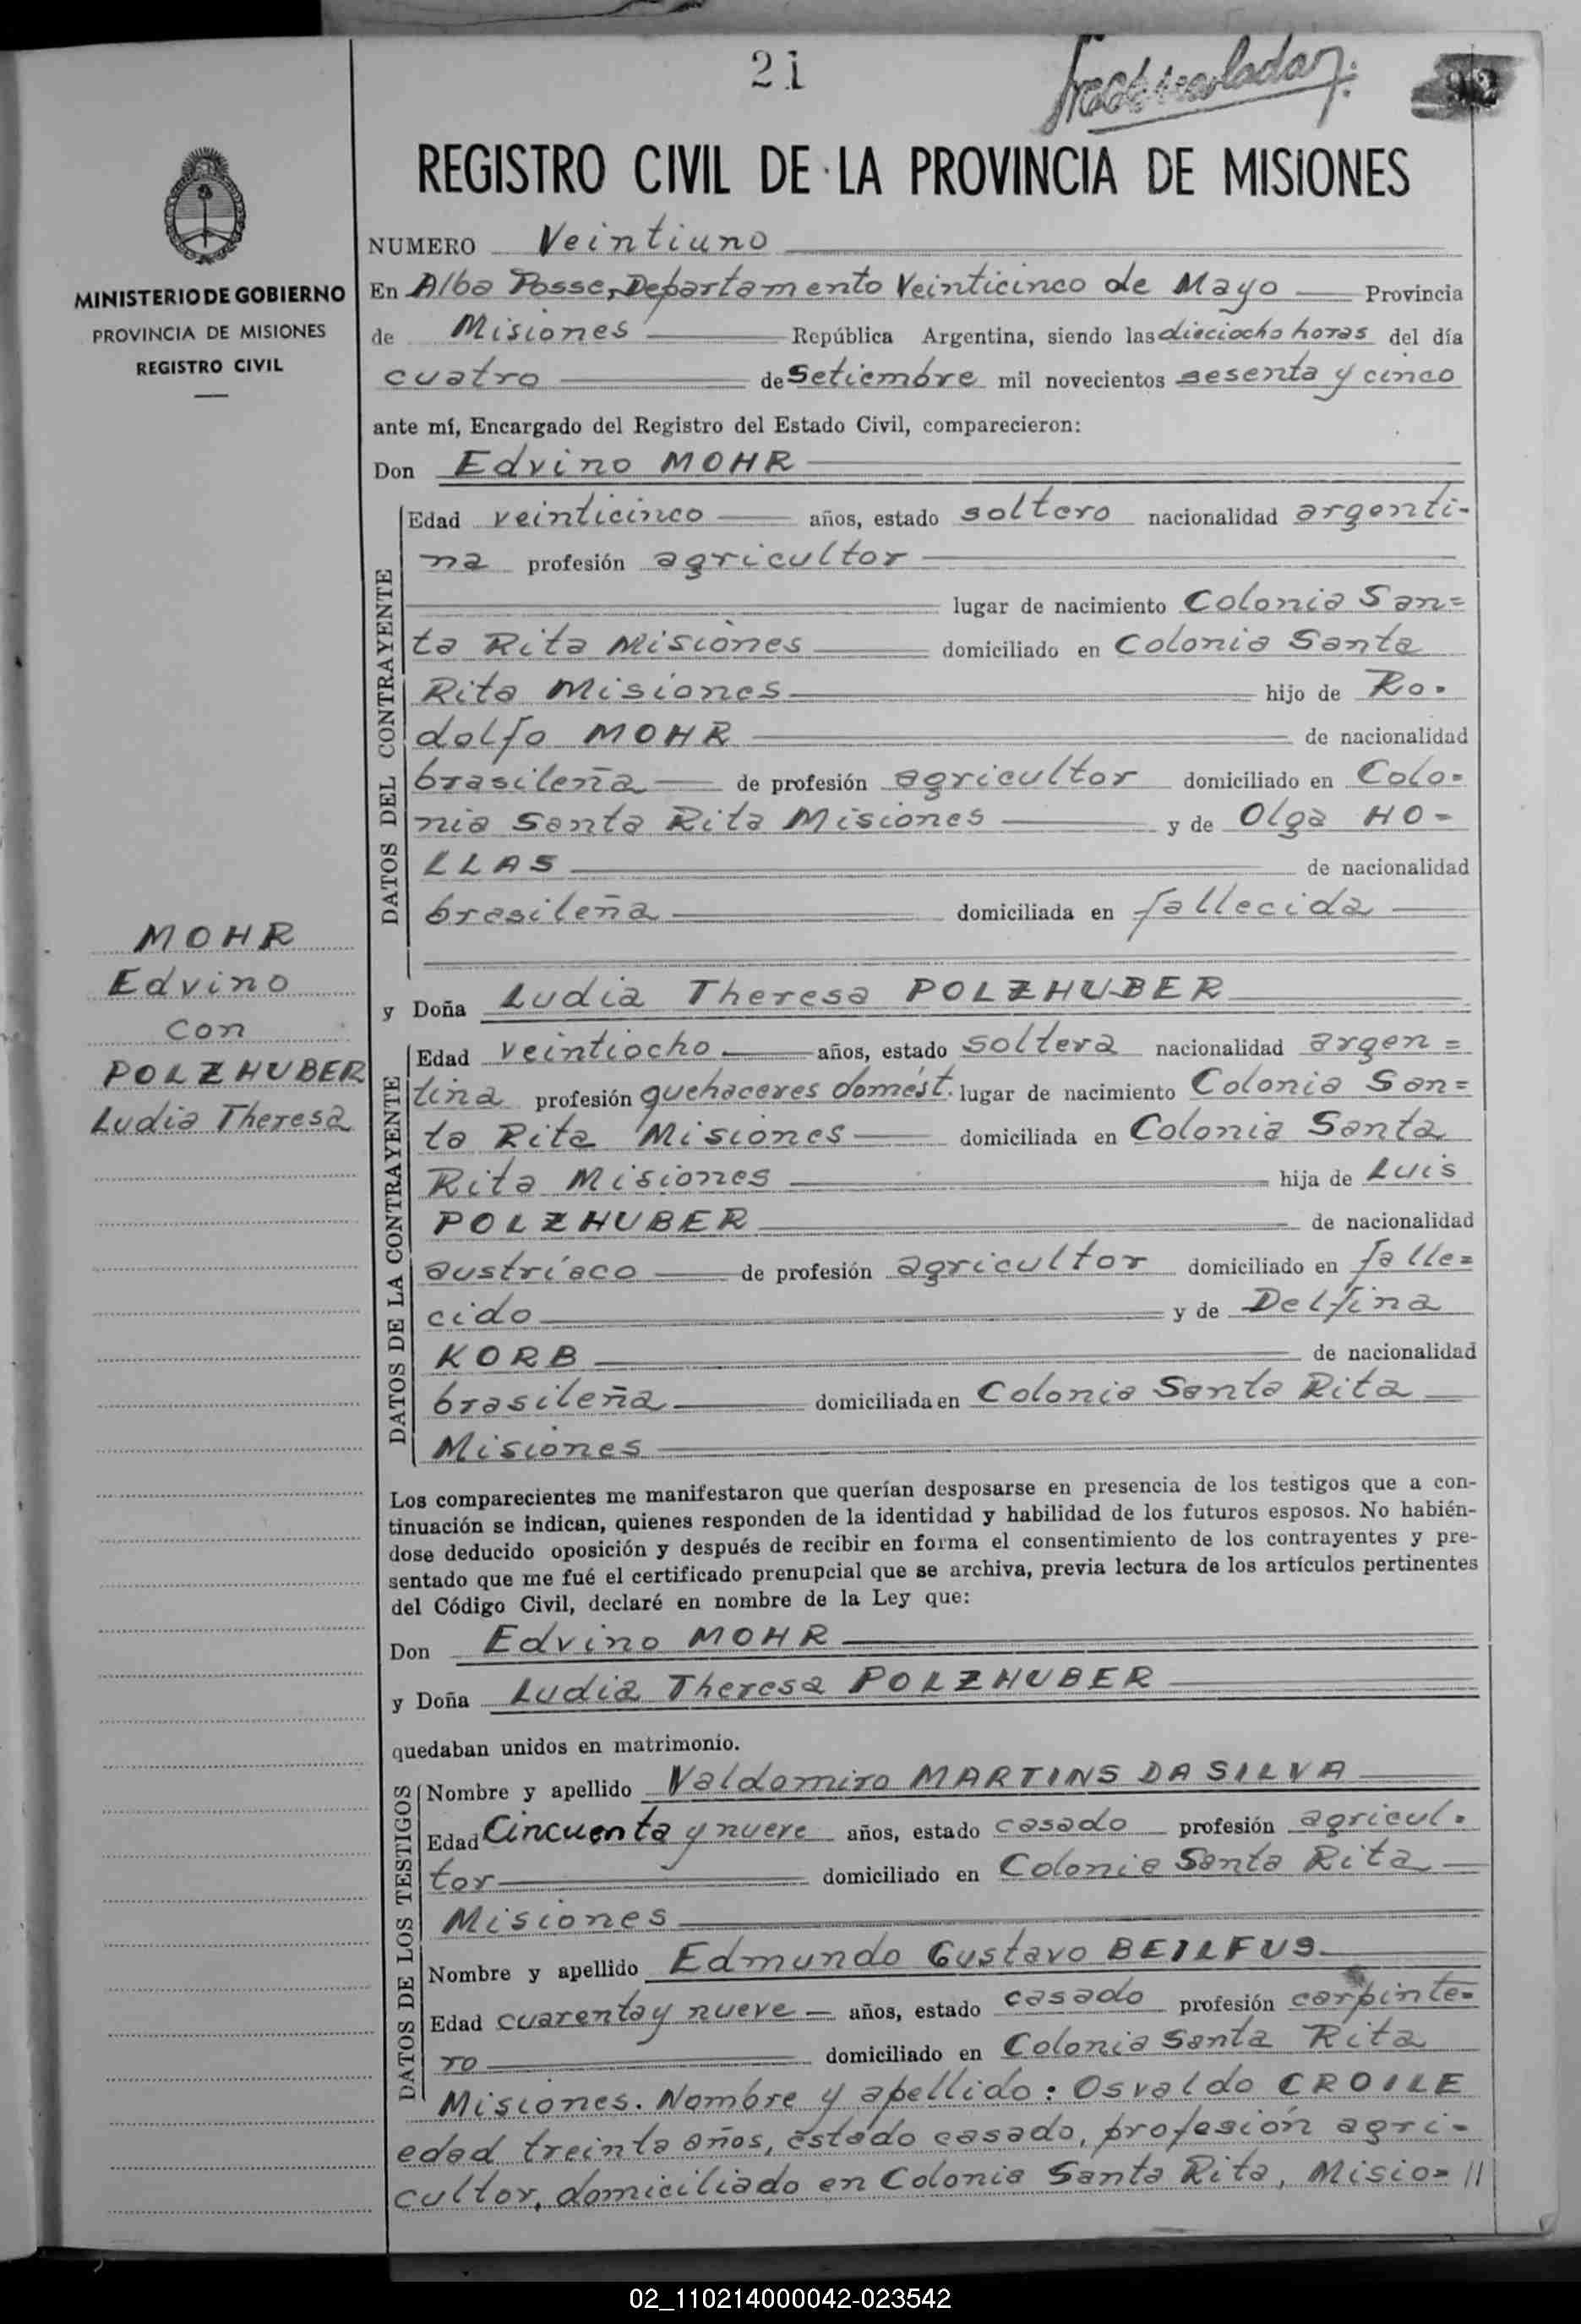 21
REGISTRO CIVIL DE LA PROVINCIA DE MISIONES
MINISTERIO DE GOBIERNO
PROVINCIA DE MISIONES
REGISTRO CIVIL
NUMERO Veintiuno
En Alba Posse, Departamento Veinticinco de Mayo Provincia
de Misiones República Argentina, siendo las dieciocho horas del día
cuatro de Setiembre mil novecientos sesenta y cinco
ante mí, Encargado del Registro del Estado Civil, comparecieron:
Don Edvino MOHR
DATOS DEL CONTRAYENTE
Edad veinticinco años, estado soltero nacionalidad argenti-
na profesión agricultor
lugar de nacimiento Colonia San=
ta Rita Misiones domiciliado en Colonia Santa
Rita Misiones hijo de Ro-
dolfo MOHR de nacionalidad
brasileña de profesión agricultor domiciliado en Colo=
nia Santa Rita Misiones y de Olga HO-
LLAS de nacionalidad
brasileña domiciliada en fallecida
MOHR
Edvino
con
POLZHUBER
Ludia Theresa
y Doña Ludia Theresa POLZHUBER
DATOS DE LA CONTRAYENTE
Edad veintiocho años, estado soltera nacionalidad argen=
tina profesión quehaceres domést. lugar de nacimiento Colonia San=
ta Rita Misiones domiciliada en Colonia Santa
Rita Misiones hija de Luis
POLZHUBER de nacionalidad
austríaco de profesión agricultor domiciliado en falle=
cido y de Delfina
KORB de nacionalidad
brasileña domiciliada en Colonia Santa Rita
Misiones
Los comparecientes me manifestaron que querían desposarse en presencia de los testigos que a con-
tinuación se indican, quienes responden de la identidad y habilidad de los futuros esposos. No habién-
dose deducido oposición y después de recibir en forma el consentimiento de los contrayentes y pre-
sentado que me fué el certificado prenupcial que se archiva, previa lectura de los artículos pertinentes
del Código Civil, declaré en nombre de la Ley que:
Don Edvino MOHR
y Doña Ludia Theresa POLZHUBER
quedaban unidos en matrimonio.
DATOS DE LOS TESTIGOS
Nombre y apellido Valdomiro MARTINS DA SILVA
Edad Cincuenta y nueve años, estado casado profesión agricul-
tor domiciliado en Colonia Santa Rita
Misiones
Nombre y apellido Edmundo Gustavo BEILFUS
Edad cuarenta y nueve años, estado casado profesión carpinte=
ro domiciliado en Colonia Santa Rita
Misiones. Nombre y apellido: Osvaldo CROILE
edad treinta años, estado casado, profesión agri-
cultor, domiciliado en Colonia Santa Rita, Misio= //
02_110214000042-023542